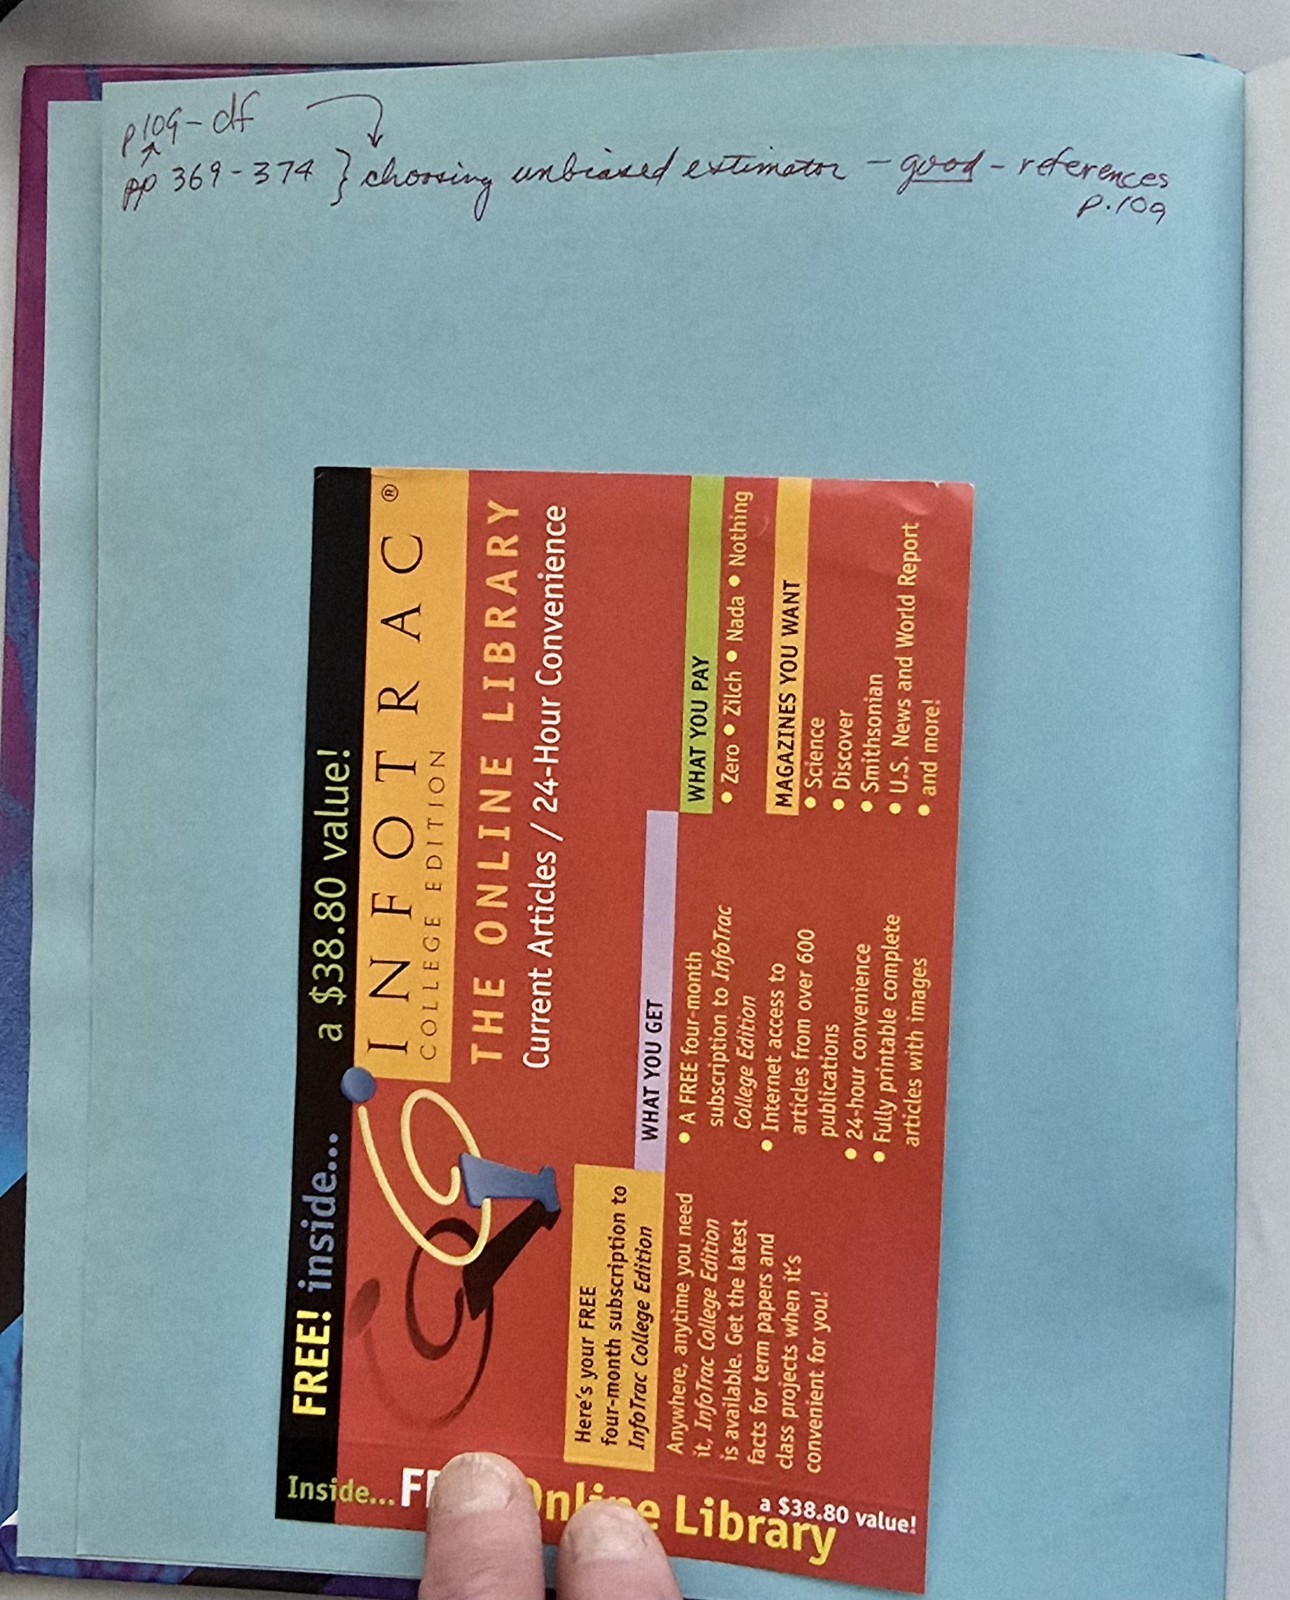 p109-df
pp 369-374 } choosing unbiased estimator - good - references
p.109
FREE! inside... a $38.80 value!
INFOTRAC®
COLLEGE EDITION
THE ONLINE LIBRARY
Current Articles / 24-Hour Convenience
Here's your FREE
four-month subscription to
InfoTrac College Edition
Anywhere, anytime you need
it, InfoTrac College Edition
is available. Get the latest
facts for term papers and
class projects when it's
convenient for you!
WHAT YOU GET
• A FREE four-month
subscription to InfoTrac
College Edition
• Internet access to
articles from over 600
publications
• 24-hour convenience
• Fully printable complete
articles with images
WHAT YOU PAY
• Zero • Zilch • Nada • Nothing
MAGAZINES YOU WANT
• Science
• Discover
• Smithsonian
• U.S. News and World Report
• and more!
Inside... Online Library
a $38.80 value!